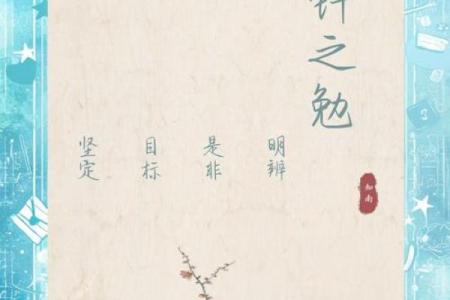 之勉
明辨
是非
目标
坚定